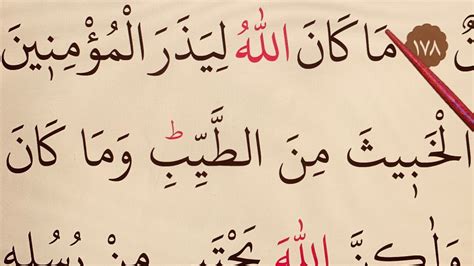 ١٧٨ مَا كَانَ اللّٰهُ لِيَذَرَ الْمُؤْمِنِينَ
الْخَبِيثَ مِنَ الطَّيِّبِ ۜط وَمَا كَانَ
وَلٰكِنَّ اللّٰهَ يَجْتَبِي مِنْ رُسُلِهِ